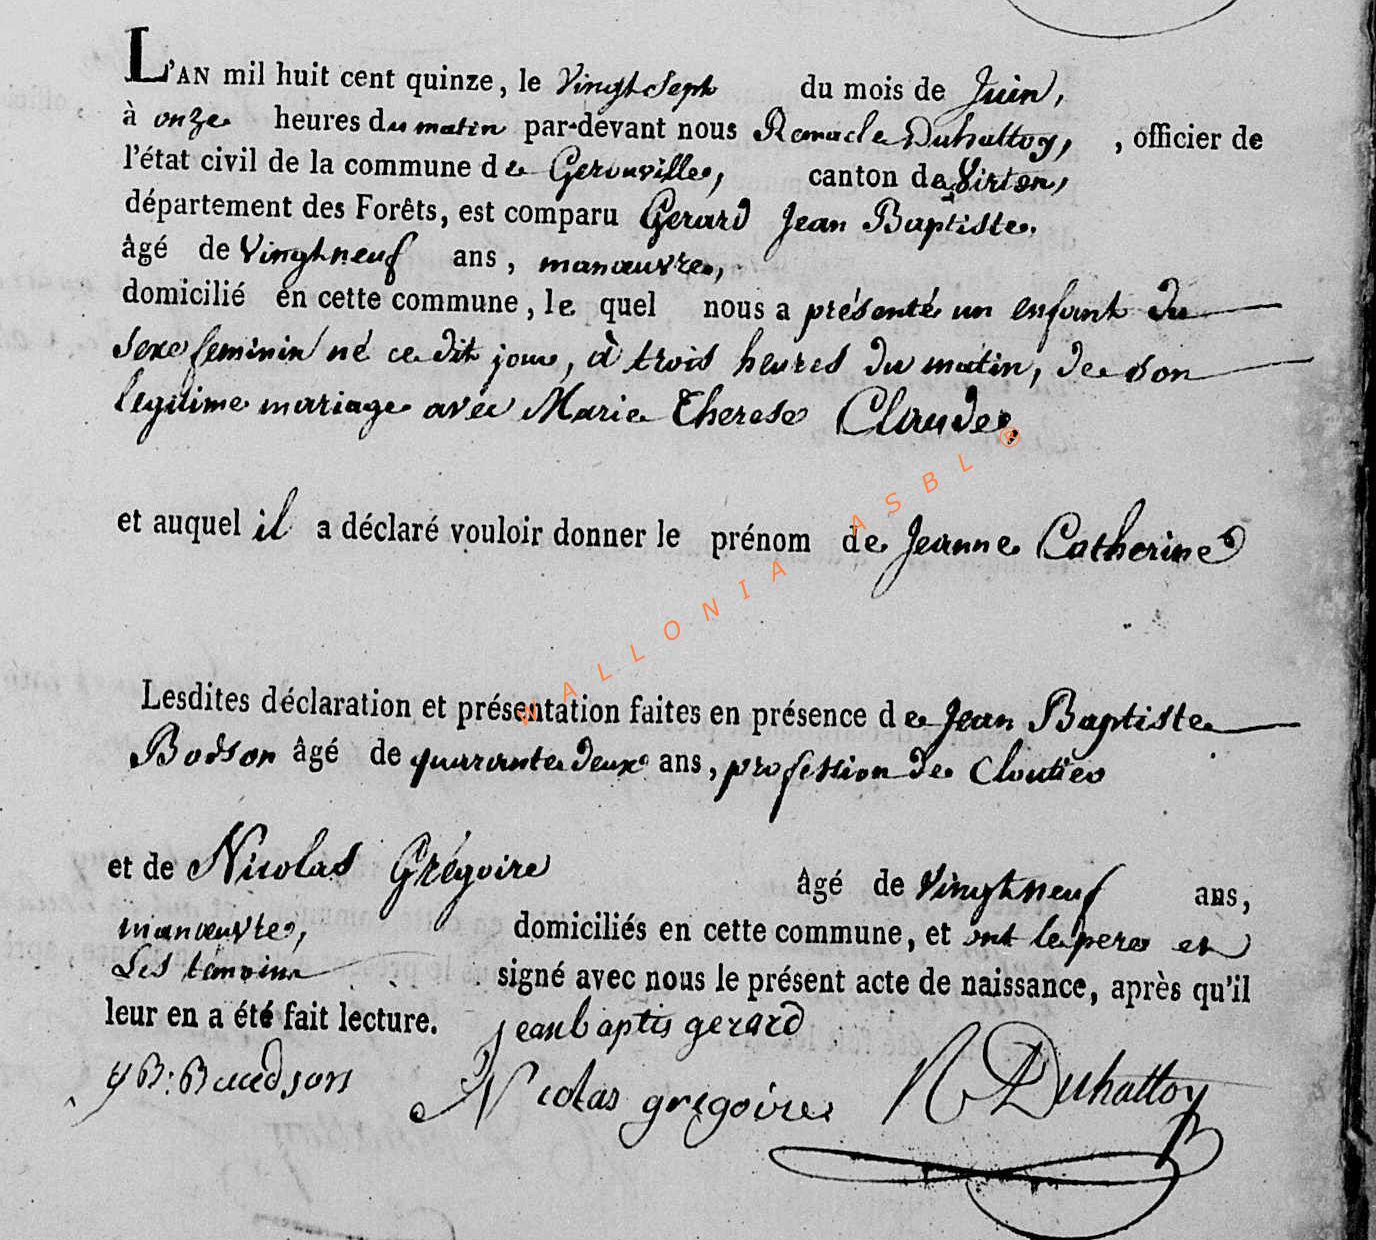 L'AN mil huit cent quinze, le Vingt Sept du mois de Juin,
à onze heures du matin par-devant nous Remacle Duhattoy, , officier de
l'état civil de la commune de Gerouville, canton de Virton,
département des Forêts, est comparu Gerard Jean Baptiste.
âgé de Vingt neuf ans, manœuvre,
domicilié en cette commune, le quel nous a présenté un enfant du
sexe feminin né ce dit jour, à trois heures du matin, de son
legitime mariage avec Marie Therese Claude.
et auquel il a déclaré vouloir donner le prénom de Jeanne Catherine
Lesdites déclaration et présentation faites en présence de Jean Baptiste
Bodson âgé de quarante deux ans, profession de Cloutier
et de Nicolas Grégoire âgé de Vingt neuf ans,
manœuvre, domiciliés en cette commune, et ont le pere et
Les témoins signé avec nous le présent acte de naissance, après qu'il
leur en a été fait lecture. jean baptis gerard
J B: Baudson Nicolas gregoire R Duhattoy
WALLONIA ASBL ®